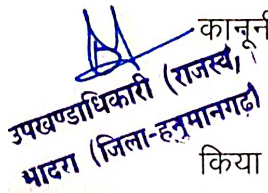 कानूनी
उपखण्डाधिकारी (राजस्व)
भादरा (जिला-हनुमानगढ़)
किया